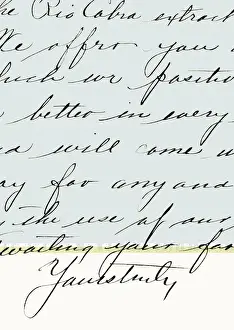 the Rio Cobra extract
We offro you
which we positiv
better in every
and will come u
ay for any and
the use of our
awaiting your fav
Yours truly